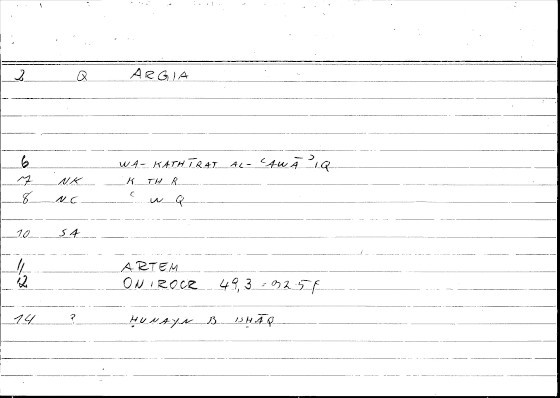 2 Q ARGIA
6 WA-KATHĪRAT AL-ʿAWĀʾIQ
7 NK K TH R
8 NC ʿ W Q
10 SA
11 ARTEM
12 ONIROCR 49,3 = 92 5 f
14 ? ḤUNAYN B ISḤĀQ